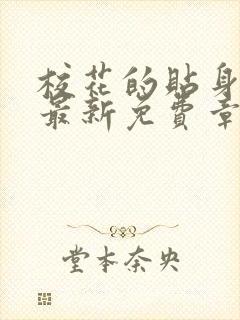 校花的贴身
最新免費章
堂本奈央